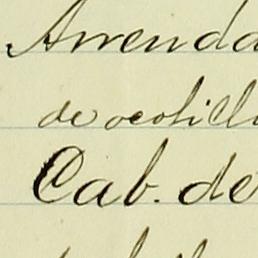 Arrenda
de ocotill
Cab. de